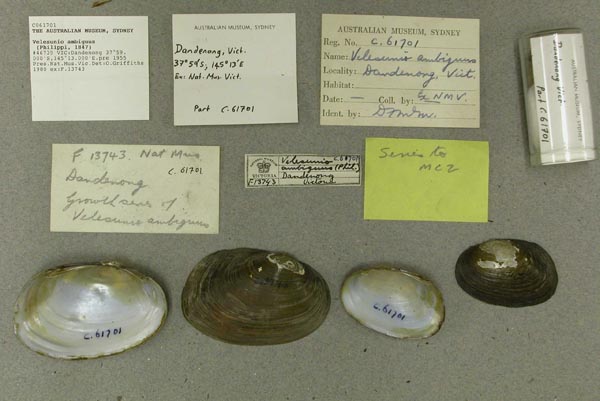 C061701
THE AUSTRALIAN MUSEUM, SYDNEY
Velesunio ambiguus
(Philippi, 1847)
VIC:Dandenong 37°59.
000'E,145°13.000'E.pre 1955
Pres.Nat.Mus.Vic.Det:C.Griffiths
1980 ex:F.13743
AUSTRALIAN MUSEUM, SYDNEY
Dandenong, Vict.
37°59'S, 145°13'E
Ex: Nat. Mus Vict.
Part C.61701
THE AUSTRALIAN MUSEUM, SYDNEY
Reg. No. C.61701
Name: Velesunio ambiguus
Locality: Dandenong, Vict.
Habitat:
Date: — Coll. by: Ex NMV.
Ident. by:
AUSTRALIAN MUSEUM, SYDNEY
Dandenong Vict
Part C.61701
F 13743. Nat Mus.
C.61701
Dandenong
Growth series of
Velesunio ambiguus
VICTORIA
F13743
Velesunio C.61701
ambiguus (Phil.)
Dandenong
Victoria
Series to
MCZ
C.61701
C.61701